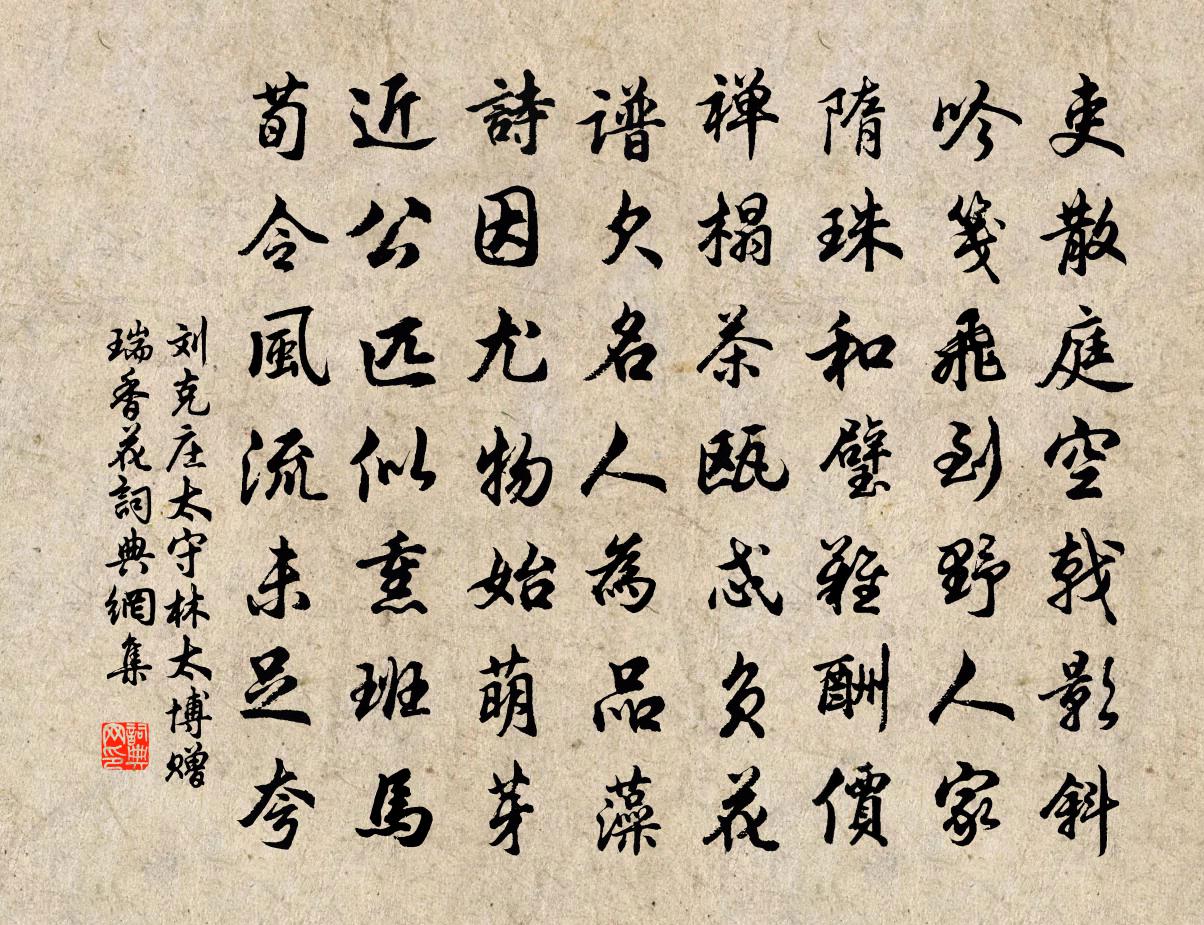 吏散庭空戟影斜
吟笺飛到野人家
隋珠和璧難酬價
禅榻茶瓯忒负花
谱欠名人為品藻
詩因尤物始萌芽
近公匹似熏班馬
荀令風流未足夸
刘克庄太守林太博赠
瑞香花詞典網集
詞典網印